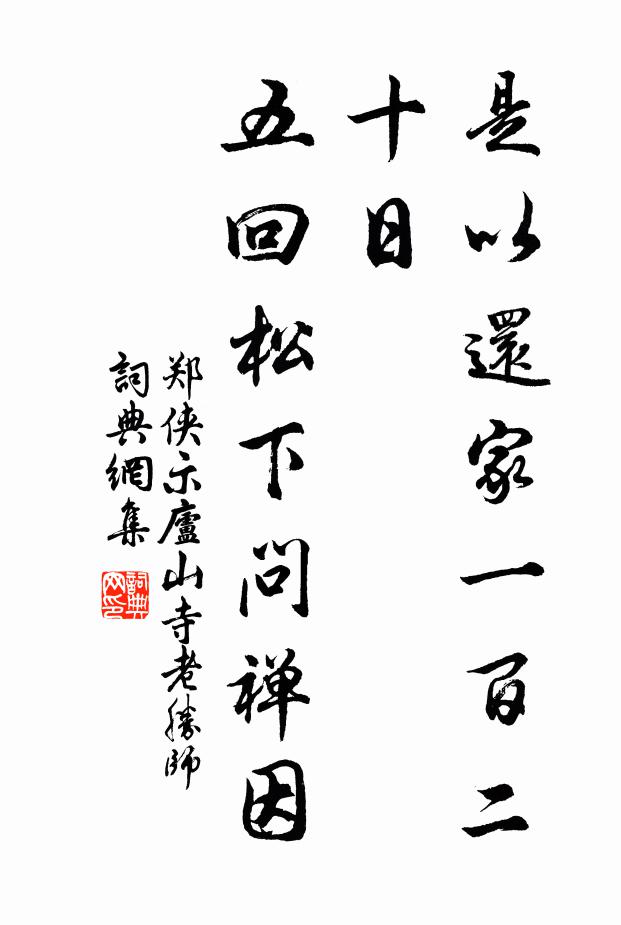 是以還家一百二
十日
五回松下問禅因
郑侠示廬山寺老勝師
詞典網集
詞典
网印